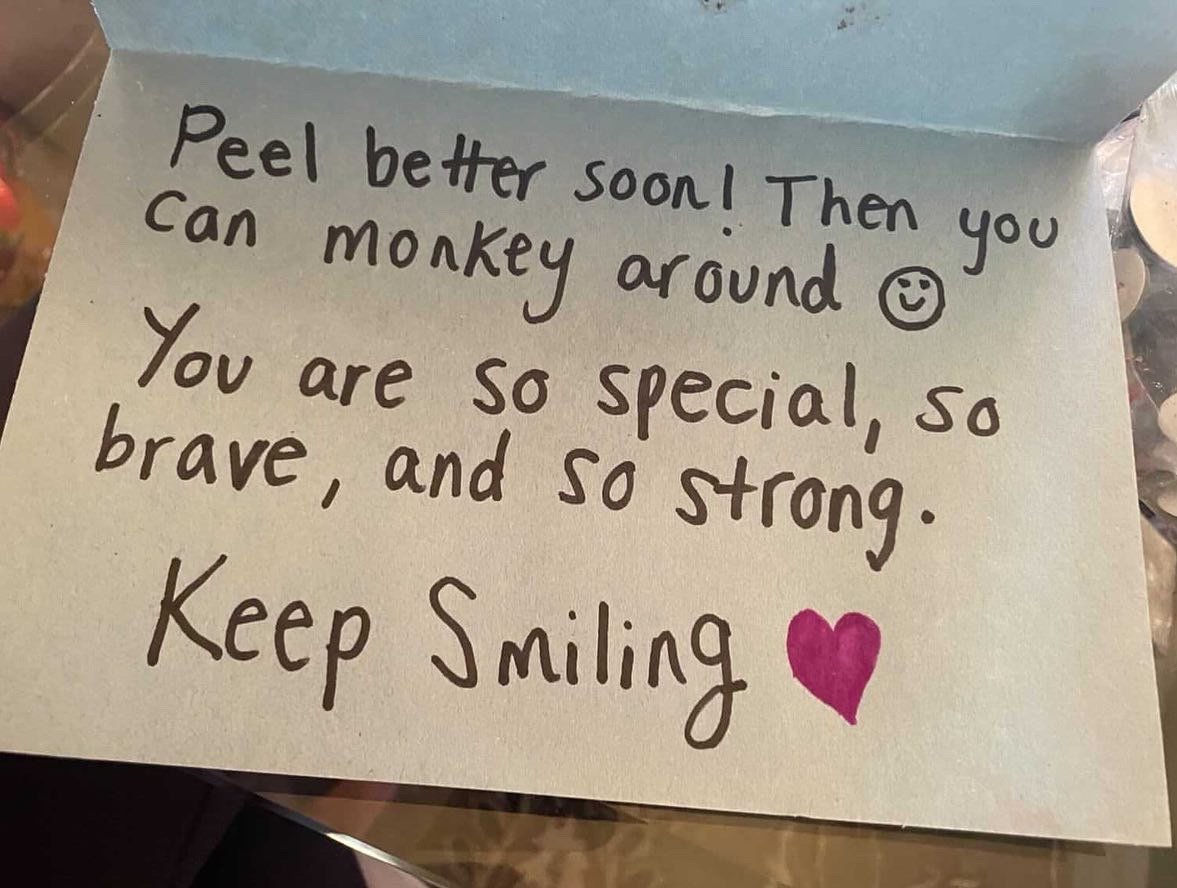 Peel better soon! Then you
can monkey around ☺
You are so special, so
brave, and so strong.
Keep Smiling ♥